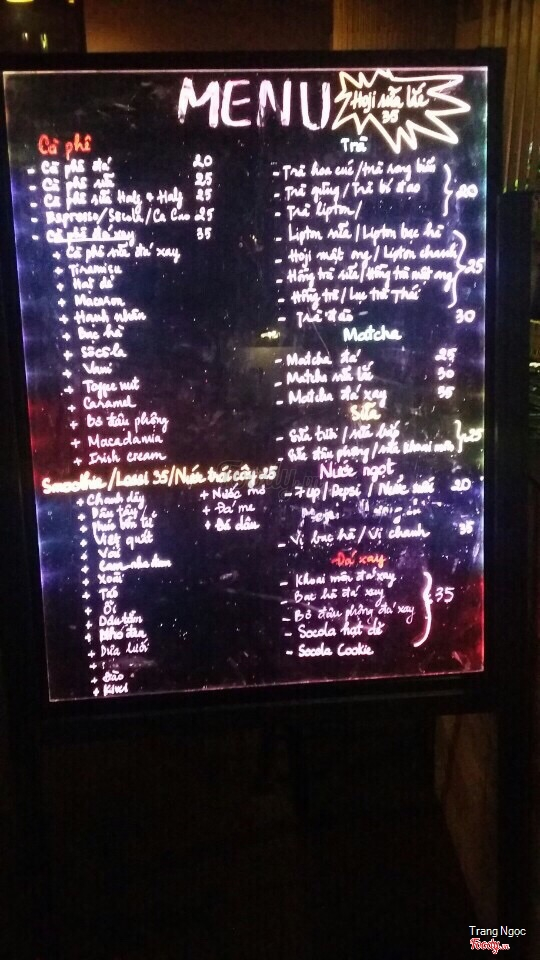 MENU
Hoji sữa lắc
35
Cà phê
- Cà phê đá 20
- Cà phê sữa 25
- Cà phê sữa Half & Half 25
- Espresso/Socola/Ca Cao 25
- Cà phê đá xay 35
+ Cà phê sữa đá xay
+ Tiramisu
+ Hạt dẻ
+ Macaron
+ Hạnh nhân
+ Bạc hà
+ Sôcôla
+ Vani
+ Toffee nut
+ Caramel
+ Bơ đậu phộng
+ Macadamia
+ Irish cream
Smoothie/Lassi 35/Nước trái cây 25
+ Chanh dây
+ Dâu tây
+ Phúc bồn tử
+ Việt quất
+ Vải
+ Cam
+ Xoài
+ Táo
+ Ổi
+ Dâu tằm
+ Nho đen
+ Dưa lưới
+ Đào
+ Kiwi
+ Nước mơ
+ Đá me
+ Đá dâu
Trà
- Trà hoa cúc/trà rong biển
- Trà gừng/Trà bí đao 20
- Trà lipton/
- Lipton sữa/Lipton bạc hà
- Hoji mật ong/Lipton chanh 25
- Hồng trà sữa/Hồng trà mật ong
- Hồng trà/Lục trà Thái
- Trà đào 30
Matcha
- Matcha đá 25
- Matcha sữa lắc 30
- Matcha đá xay 35
Sữa
- Sữa tươi/sữa bắp 25
- Sữa đậu phộng/sữa khoai môn
Nước ngọt
- 7up/Pepsi/Nước suối 20
- Vị bạc hà/Vị chanh 35
Đá xay
- Khoai môn đá xay
- Bạc hà đá xay 35
- Bơ đậu phộng đá xay
- Socola hạt dẻ
- Socola Cookie
Trang Ngọc
Foody.vn